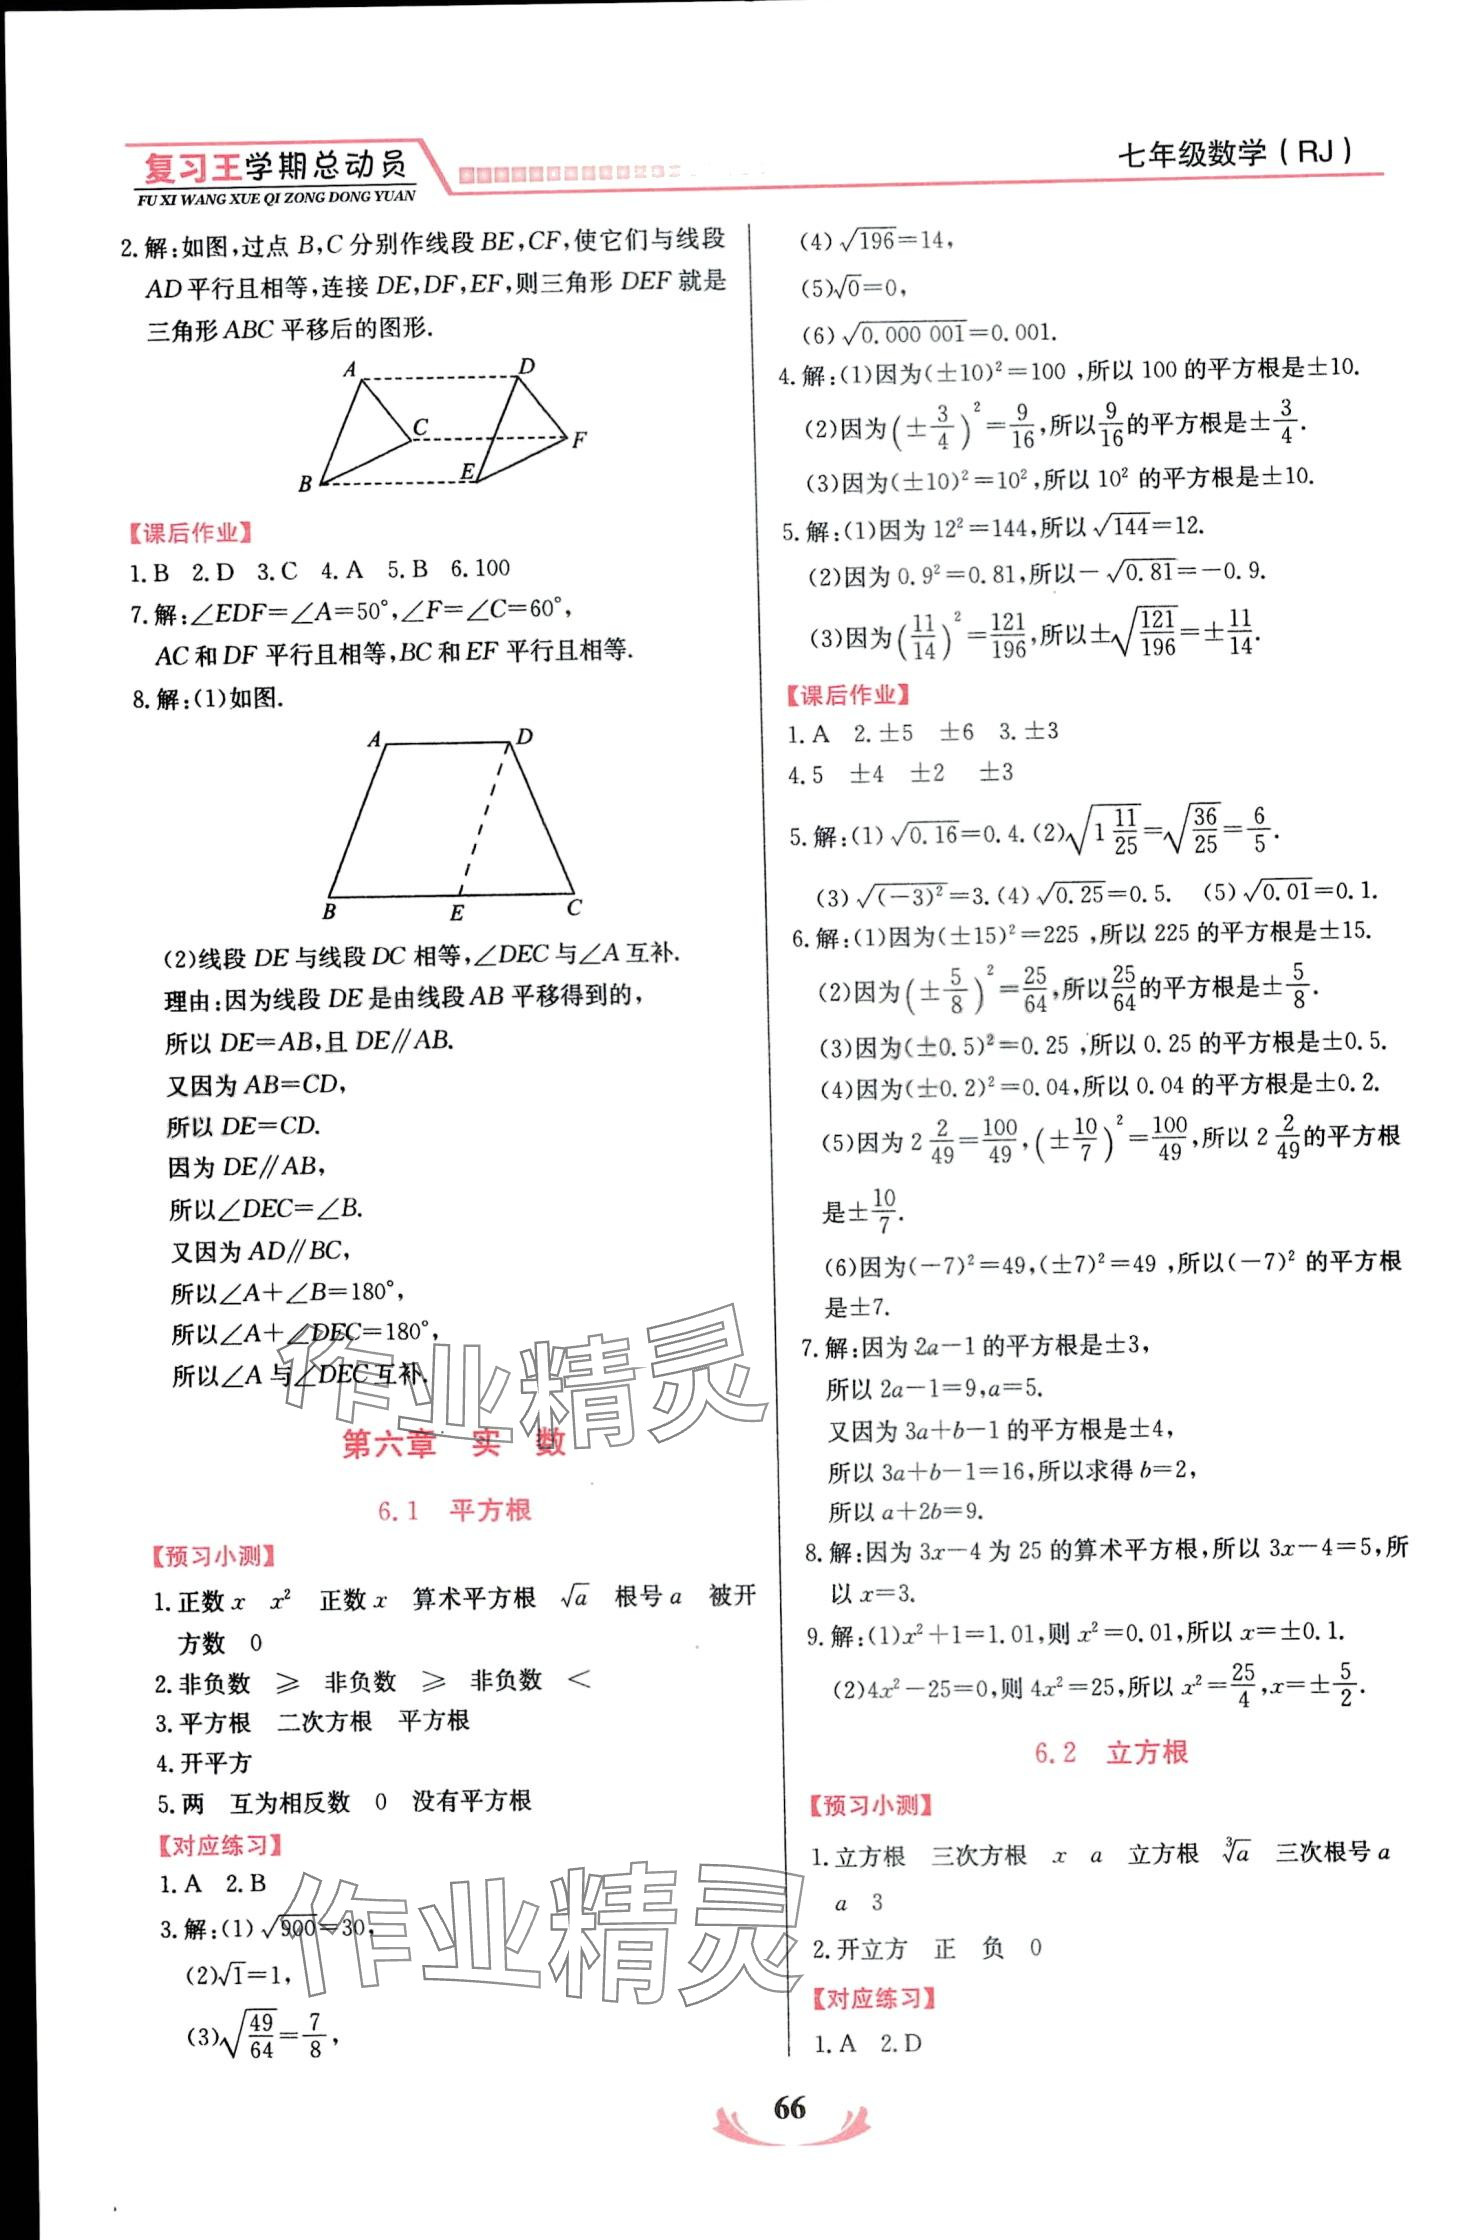 复习王学期总动员
FU XI WANG XUE QI ZONG DONG YUAN
七年级数学(RJ)
2.解:如图,过点 B,C 分别作线段 BE,CF,使它们与线段
AD 平行且相等,连接 DE,DF,EF,则三角形 DEF 就是
三角形 ABC 平移后的图形.
A D
C F
B E
【课后作业】
1.B 2.D 3.C 4.A 5.B 6.100
7.解:∠EDF=∠A=50°,∠F=∠C=60°,
AC 和 DF 平行且相等,BC 和 EF 平行且相等.
8.解:(1)如图.
A D
B E C
(2)线段 DE 与线段 DC 相等,∠DEC 与∠A 互补.
理由:因为线段 DE 是由线段 AB 平移得到的,
所以 DE=AB,且 DE∥AB.
又因为 AB=CD,
所以 DE=CD.
因为 DE∥AB,
所以∠DEC=∠B.
又因为 AD∥BC,
所以∠A+∠B=180°,
所以∠A+∠DEC=180°,
所以∠A 与∠DEC 互补.
作业精灵
第六章 实 数
6.1 平方根
【预习小测】
1.正数 x x² 正数 x 算术平方根 √a 根号 a 被开
方数 0
2.非负数 ≥ 非负数 ≥ 非负数 <
3.平方根 二次方根 平方根
4.开平方
5.两 互为相反数 0 没有平方根
【对应练习】
1.A 2.B
3.解:(1)√900=30,
(2)√1=1,
(3)√(49/64)=7/8,
作业精灵
(4)√196=14,
(5)√0=0,
(6)√0.000 001=0.001.
4.解:(1)因为(±10)²=100 ,所以 100 的平方根是±10.
(2)因为(±3/4)²=9/16,所以9/16的平方根是±3/4.
(3)因为(±10)²=10²,所以 10² 的平方根是±10.
5.解:(1)因为 12²=144,所以√144=12.
(2)因为 0.9²=0.81,所以-√0.81=-0.9.
(3)因为(11/14)²=121/196,所以±√(121/196)=±11/14.
【课后作业】
1.A 2.±5 ±6 3.±3
4.5 ±4 ±2 ±3
5.解:(1)√0.16=0.4.(2)√(1 11/25)=√(36/25)=6/5.
(3)√(-3)²=3.(4)√0.25=0.5. (5)√0.01=0.1.
6.解:(1)因为(±15)²=225 ,所以 225 的平方根是±15.
(2)因为(±5/8)²=25/64,所以25/64的平方根是±5/8.
(3)因为(±0.5)²=0.25 ,所以 0.25 的平方根是±0.5.
(4)因为(±0.2)²=0.04,所以 0.04 的平方根是±0.2.
(5)因为 2 2/49=100/49,(±10/7)²=100/49,所以 2 2/49的平方根
是±10/7.
(6)因为(-7)²=49,(±7)²=49 ,所以(-7)² 的平方根
是±7.
7.解:因为 2a-1 的平方根是±3,
所以 2a-1=9,a=5.
又因为 3a+b-1 的平方根是±4,
所以 3a+b-1=16,所以求得 b=2,
所以 a+2b=9.
8.解:因为 3x-4 为 25 的算术平方根,所以 3x-4=5,所
以 x=3.
9.解:(1)x²+1=1.01,则 x²=0.01,所以 x=±0.1.
(2)4x²-25=0,则 4x²=25,所以 x²=25/4,x=±5/2.
6.2 立方根
【预习小测】
1.立方根 三次方根 x a 立方根 ∛a 三次根号 a
a 3
2.开立方 正 负 0
【对应练习】
1.A 2.D
66